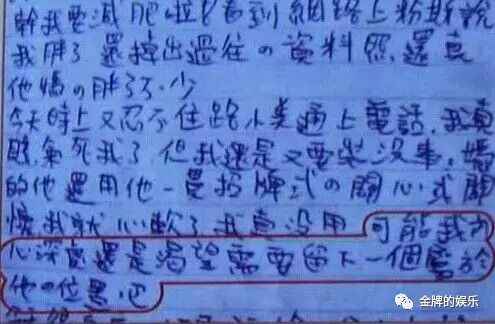 幹我要減肥啦!看到網路上粉斯說
我胖了 還掉出過往の資料照,還真
他媽の胖了不少
今天晚上又忍不住跟小 通上電話,我真
氣死我了,但我還是又要裝沒事,媽
的他還用他一貫招牌式の關心或關
懷我就心軟了我真沒用 可能我內
心深處還是渴望需要留下一個屬於
他の位置吧
金牌的娱乐